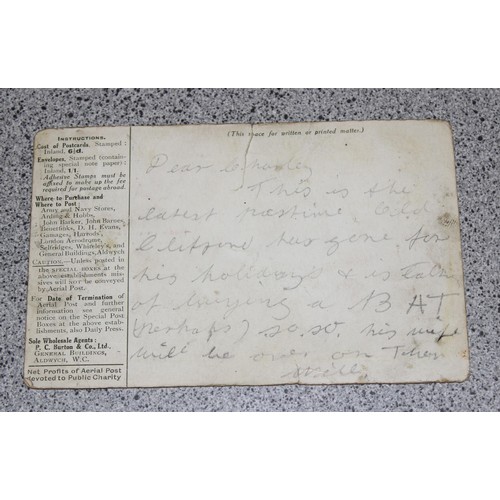 INSTRUCTIONS.
Cost of Postcards. Stamped:
Inland, 6½d.
Envelopes, Stamped (contain-
ing special note paper):
Inland, 1/1.
Adhesive Stamps must be
affixed to make up the fee
required for postage abroad.
Where to Purchase and
Where to Post:
Army and Navy Stores,
Arding & Hobbs,
John Barker, John Barnes,
Benetfinks, D. H. Evans,
Gamages, Harrods',
London Aerodrome,
Selfridges, Whiteley's, and
General Buildings, Aldwych
CAUTION.—Unless posted
in the SPECIAL BOXES at the
above establishments missives
will not be conveyed
by Aerial Post.
For Date of Termination of
Aerial Post and further
information see general
notice on the Special Post
Boxes at the above estab-
lishments, also Daily Press.
Sole Wholesale Agents:
P. C. Burton & Co., Ltd.,
GENERAL BUILDINGS,
ALDWYCH, W.C.
Net Profits of Aerial Post
devoted to Public Charity
(This space for written or printed matter.)
Dear Charley
This is the
latest pastime
has gone for
his holidays & is
of buying a BAT
(perhaps) so.so. his wife
will be over on